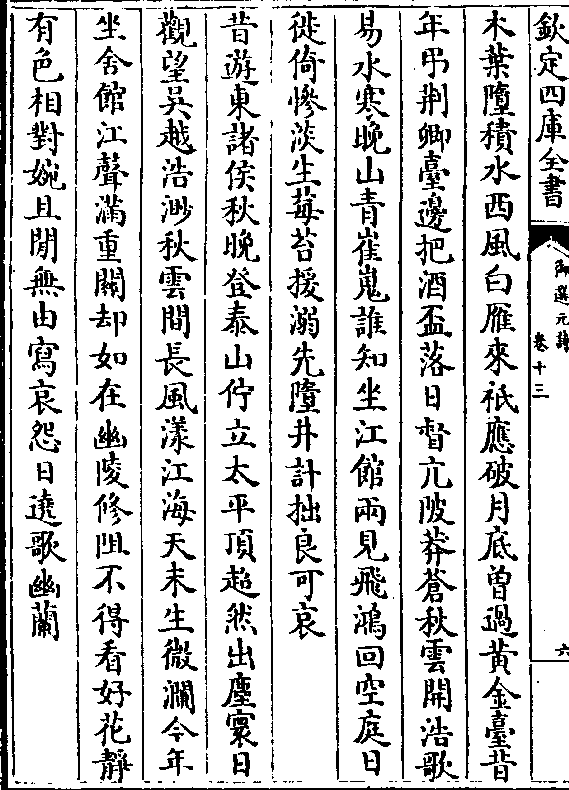 欽定四庫全書
御選元詩
卷十三
六
木葉墮積水西風白雁來祇應破月底曾過黃金臺昔
年弔荆卿臺邊把酒盃落日督亢陂莽蒼秋雲開浩歌
易水寒晚山青崔嵬誰知坐江館兩見飛鴻回空庭日
徙倚慘淡生莓苔援溺先墮井計拙良可哀
昔遊東諸侯秋晚登泰山佇立太平頂超然出塵寰日
觀望吳越浩渺秋雲間長風漾江海天末生微瀾今年
坐舍館江聲滿重關却如在幽陵修阻不得看好花靜
有色相對婉且閒無由寫哀怨日遶歌幽蘭